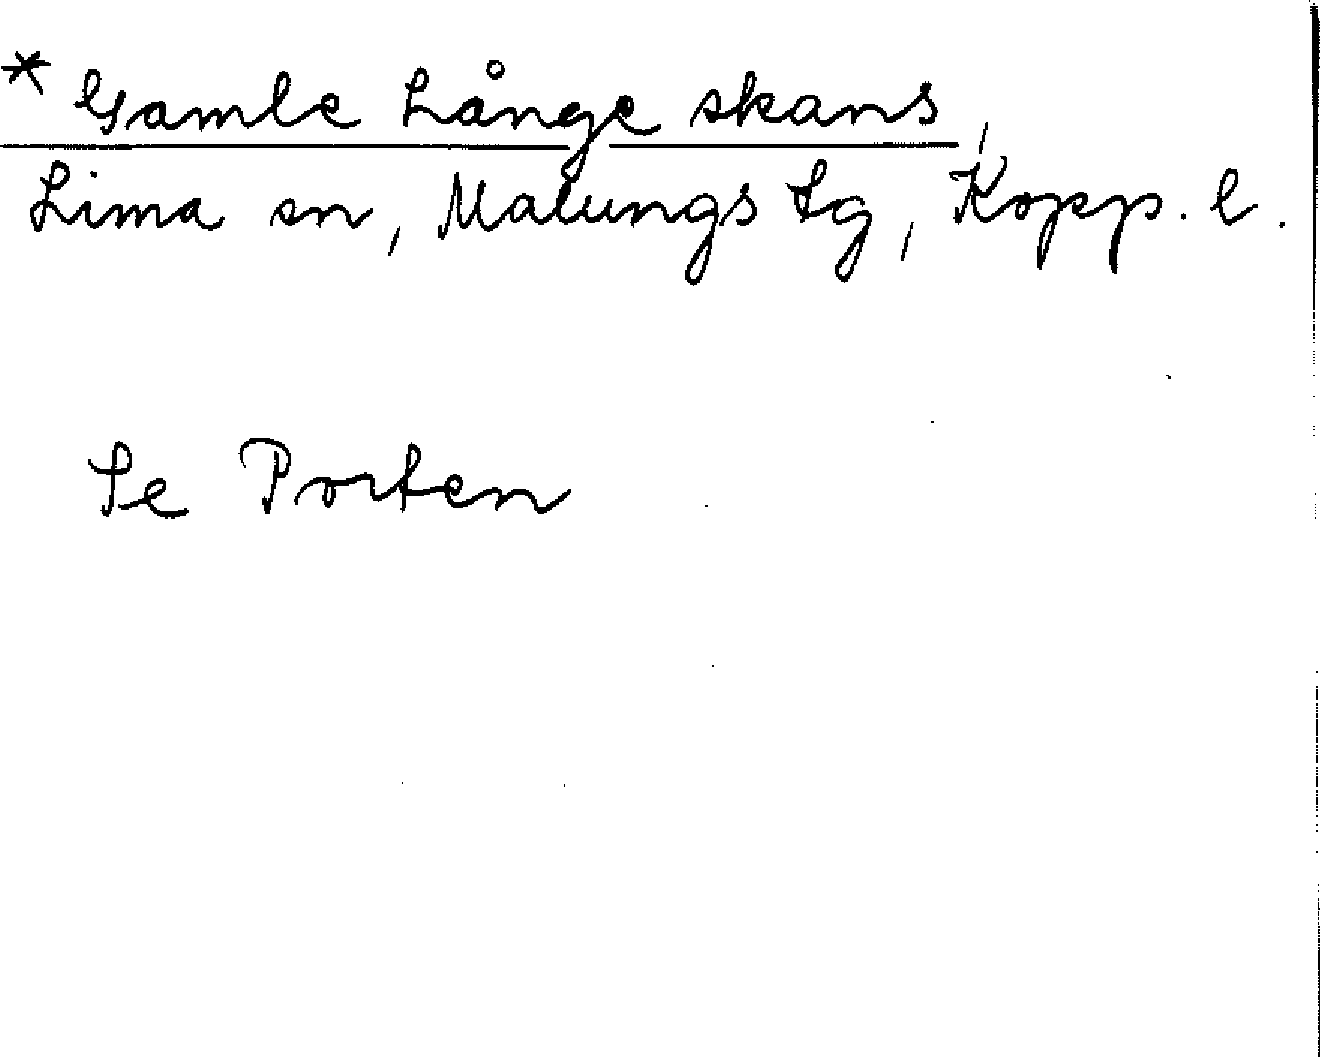 * Gamle Långe skans,
Lima sn, Malungs tg, Kopp. l.
Se Porten